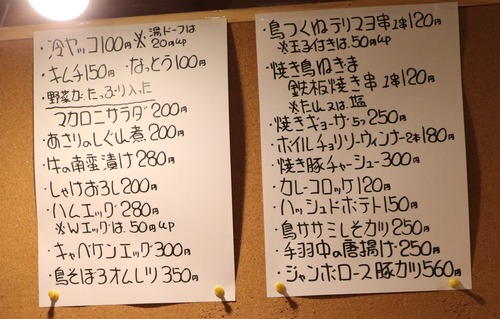 ・冷ヤッコ100円 ※湯ドーフは20円up
・キムチ150円 ・なっとう100円
・野菜がたっぷり入った
マカロニサラダ200円
・あさりのしぐれ煮200円
・の南蛮漬け280円
・しゃけおろし200円
・ハムエッグ280円
※Wエッグは、50円up
・キャベツエッグ300円
・鳥そぼろオムレツ350円
・鳥つくねテリマヨ串1本120円
※玉子付きは、50円up
・焼き鳥ねぎま
鉄板焼き串1本120円
※たれ又は塩
・焼きギョーザ5ヶ250円
・ボイルチョリソーウィンナー2本180円
・焼き豚チャーシュー300円
・カレーコロッケ120円
・ハッシュドポテト150円
・鳥ササミしそカツ250円
・手羽中の唐揚げ250円
・ジャンボロース豚カツ560円